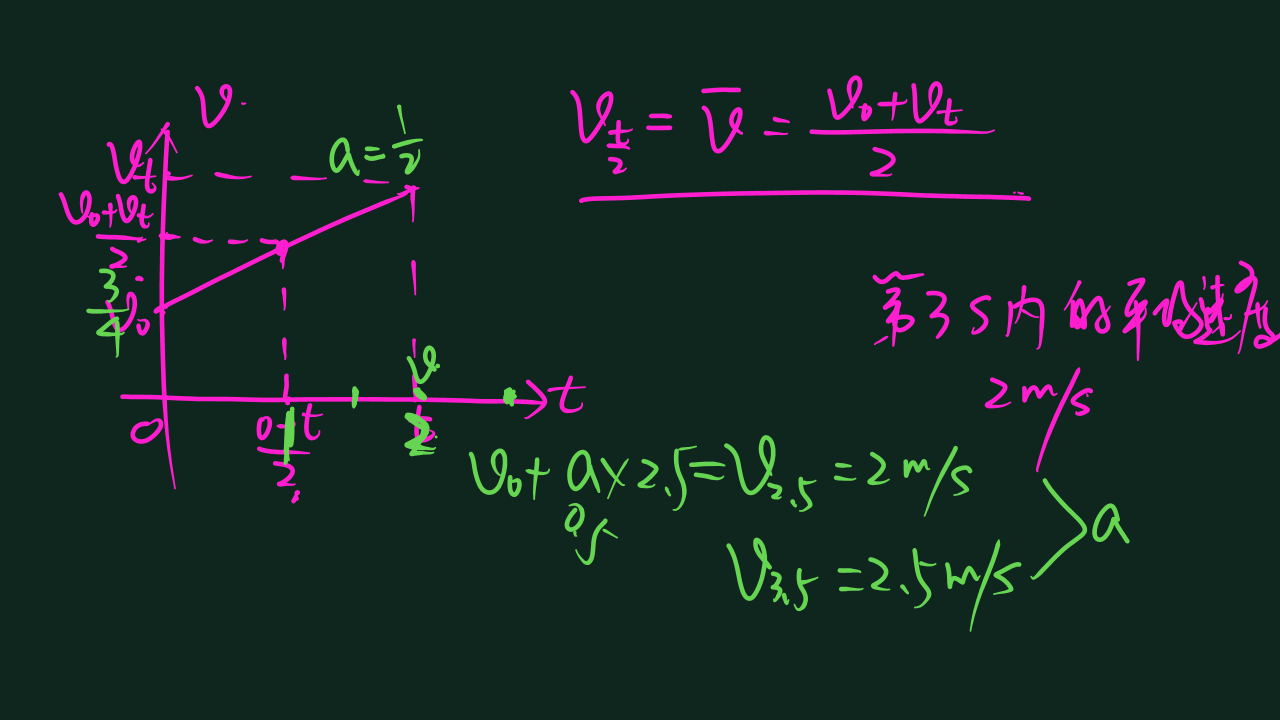 v
v_t
(v_0+v_t)/2
3/4
v_0
a=1/2
0
t
2
v_{t/2} = v̄ = (v_0+v_t)/2
第3s内的平均速度
2m/s
v_0+a×2.5=v_{2.5}=2m/s
0.5
v_{3.5}=2.5m/s
a